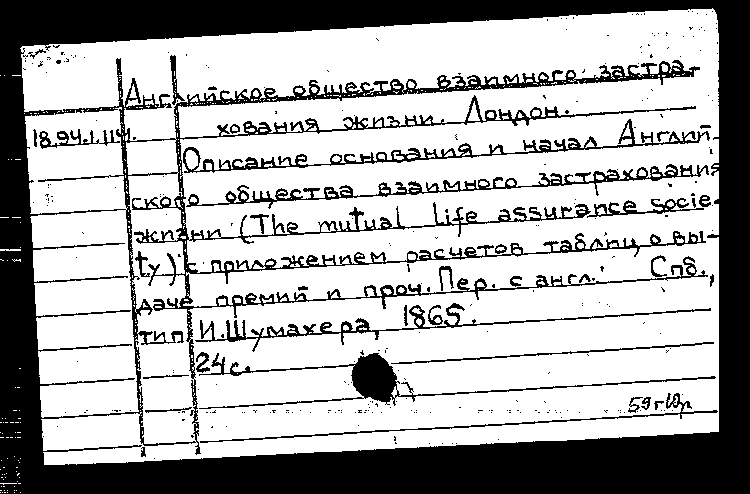 Английское общество взаимного застра-
18.94.1.114.
хования жизни. Лондон.
Описание основания и начал Англий-
ского общества взаимного застрахования
жизни (The mutual life assurance socie-
ty) с приложением расчетов таблиц, о вы-
даче премий и проч. Пер. с англ. Спб.,
тип. И. Шумахера, 1865.
24 с.